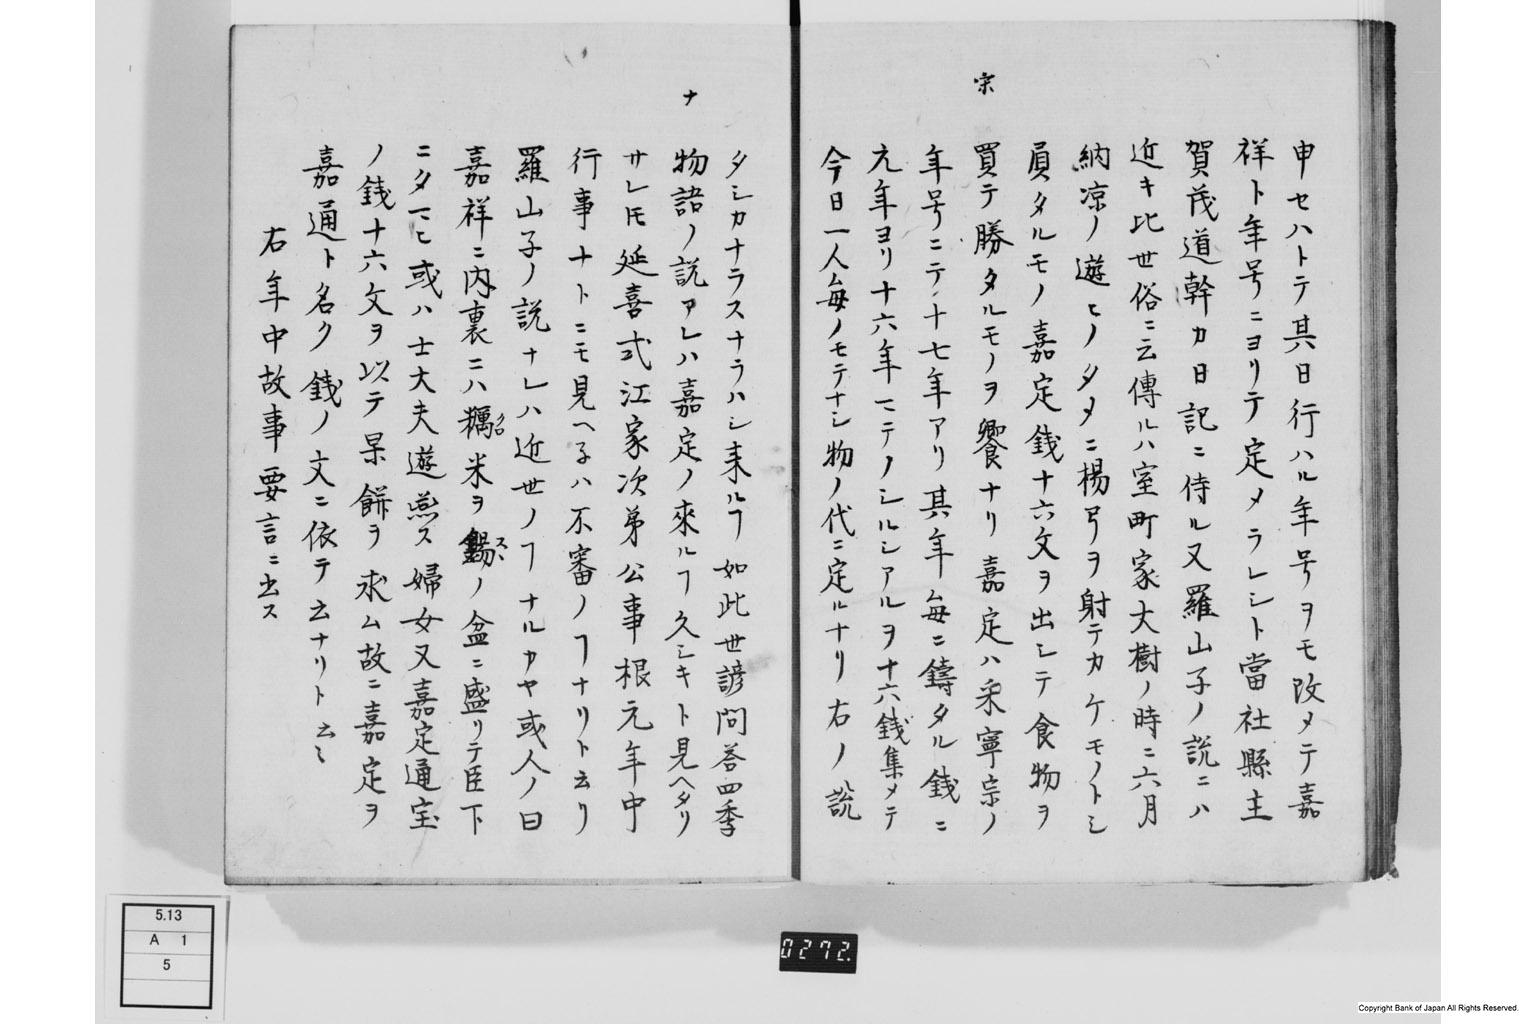 宗
申セハトテ其日行ハル年号ヲモ改メテ嘉
祥ト年号ニヨリテ定メラレシト當社縣主
賀茂道幹カ日記ニ侍ル又羅山子ノ説ニハ
近キ比世俗ニ云傳ルハ室町家大樹ノ時ニ六月
納凉ノ遊ヒノタメニ楊弓ヲ射テカケモノトシ
員タルモノ嘉定銭十六文ヲ出シテ食物ヲ
買テ勝タルモノヲ饗ナリ嘉定ハ宋寧宗ノ
年号ニテ十七年アリ其年毎ニ鑄タル銭ニ
元年ヨリ十六年マテノシルシアルヲ十六銭集メテ
今日一人毎ノモテナシ物ノ代ニ定ルナリ右ノ説
ナ
タシカナラスナラハシ来ルヿ如此世諺問答四季
物語ノ説アレハ嘉定ノ來ルヿ久シキト見ヘタリ
サレトモ延喜式江家次第公事根元年中
行事ナトニモ見ヘ子ハ不審ノヿナリト云リ
羅山子ノ説ナレハ近世ノヿナルカヤ或人ノ曰
嘉祥ニ内裏ニハ糲クロ米ヲ錫スヽノ盆ニ盛リテ臣下
ニタマヒ或ハ士大夫遊燕ス婦女又嘉定通宝
ノ銭十六文ヲ以テ杲餅ヲ求ム故ニ嘉定ヲ
嘉通ト名ク銭ノ文ニ依テ云ナリト云〻
右年中故事要言ニ出ス
5.13
A 1
5
0272.
Copyright Bank of Japan All Rights Reserved.